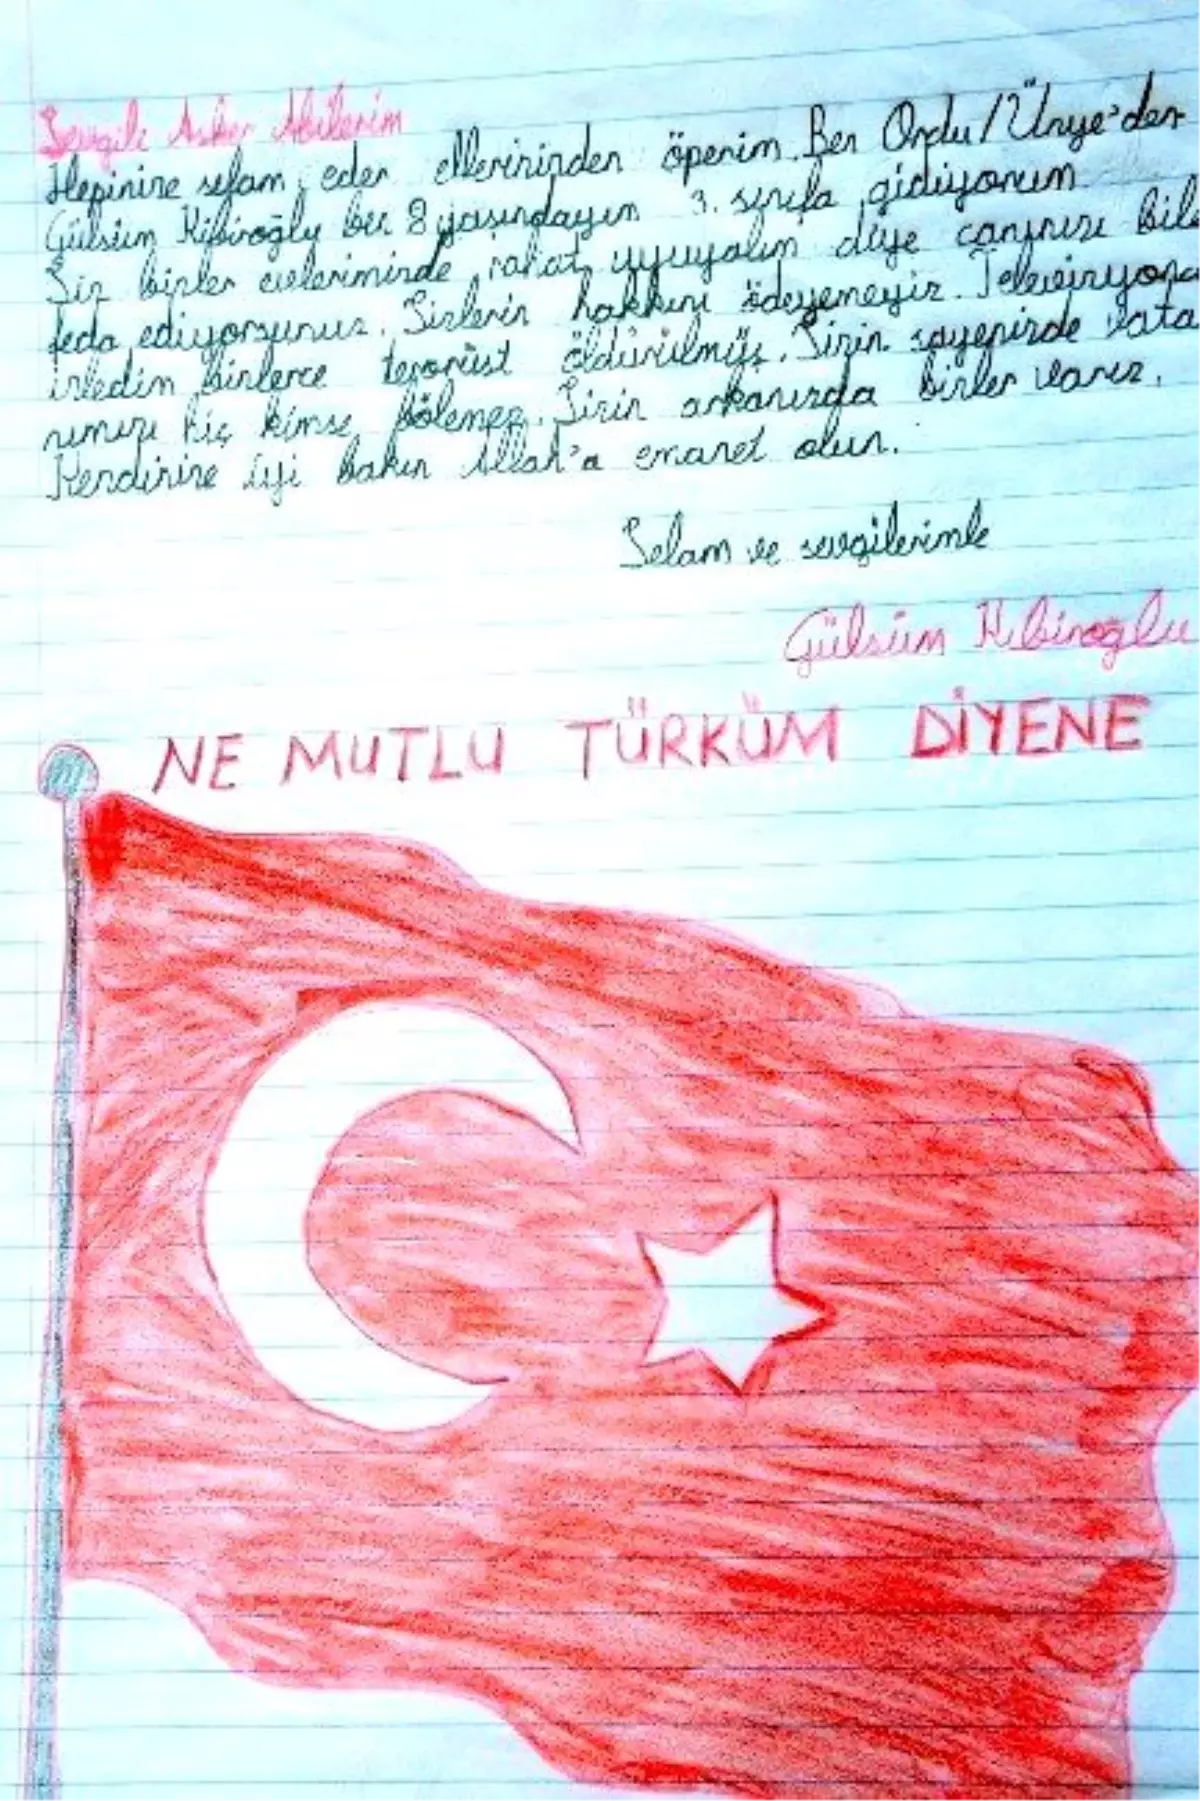 Sevgili Asker Abilerim
Hepinize selam eder ellerinizden öperim. Ben Ordu/Ünye'den
Gülsüm Kibiroğlu ben 8 yaşındayım 3. sınıfa gidiyorum.
Siz bizler evlerimizde rahat uyuyalım diye canınızı bile
feda ediyorsunuz. Sizlerin hakkını ödeyemeyiz. Televizyonda
izledim binlerce terörist öldürülmüş. Sizin sayenizde vata
nımızı hiç kimse bölemez. Sizin arkanızda bizler varız.
Kendinize iyi bakın Allah'a emanet olun.
Selam ve sevgilerimle
Gülsüm Kibiroğlu
NE MUTLU TÜRKÜM DİYENE